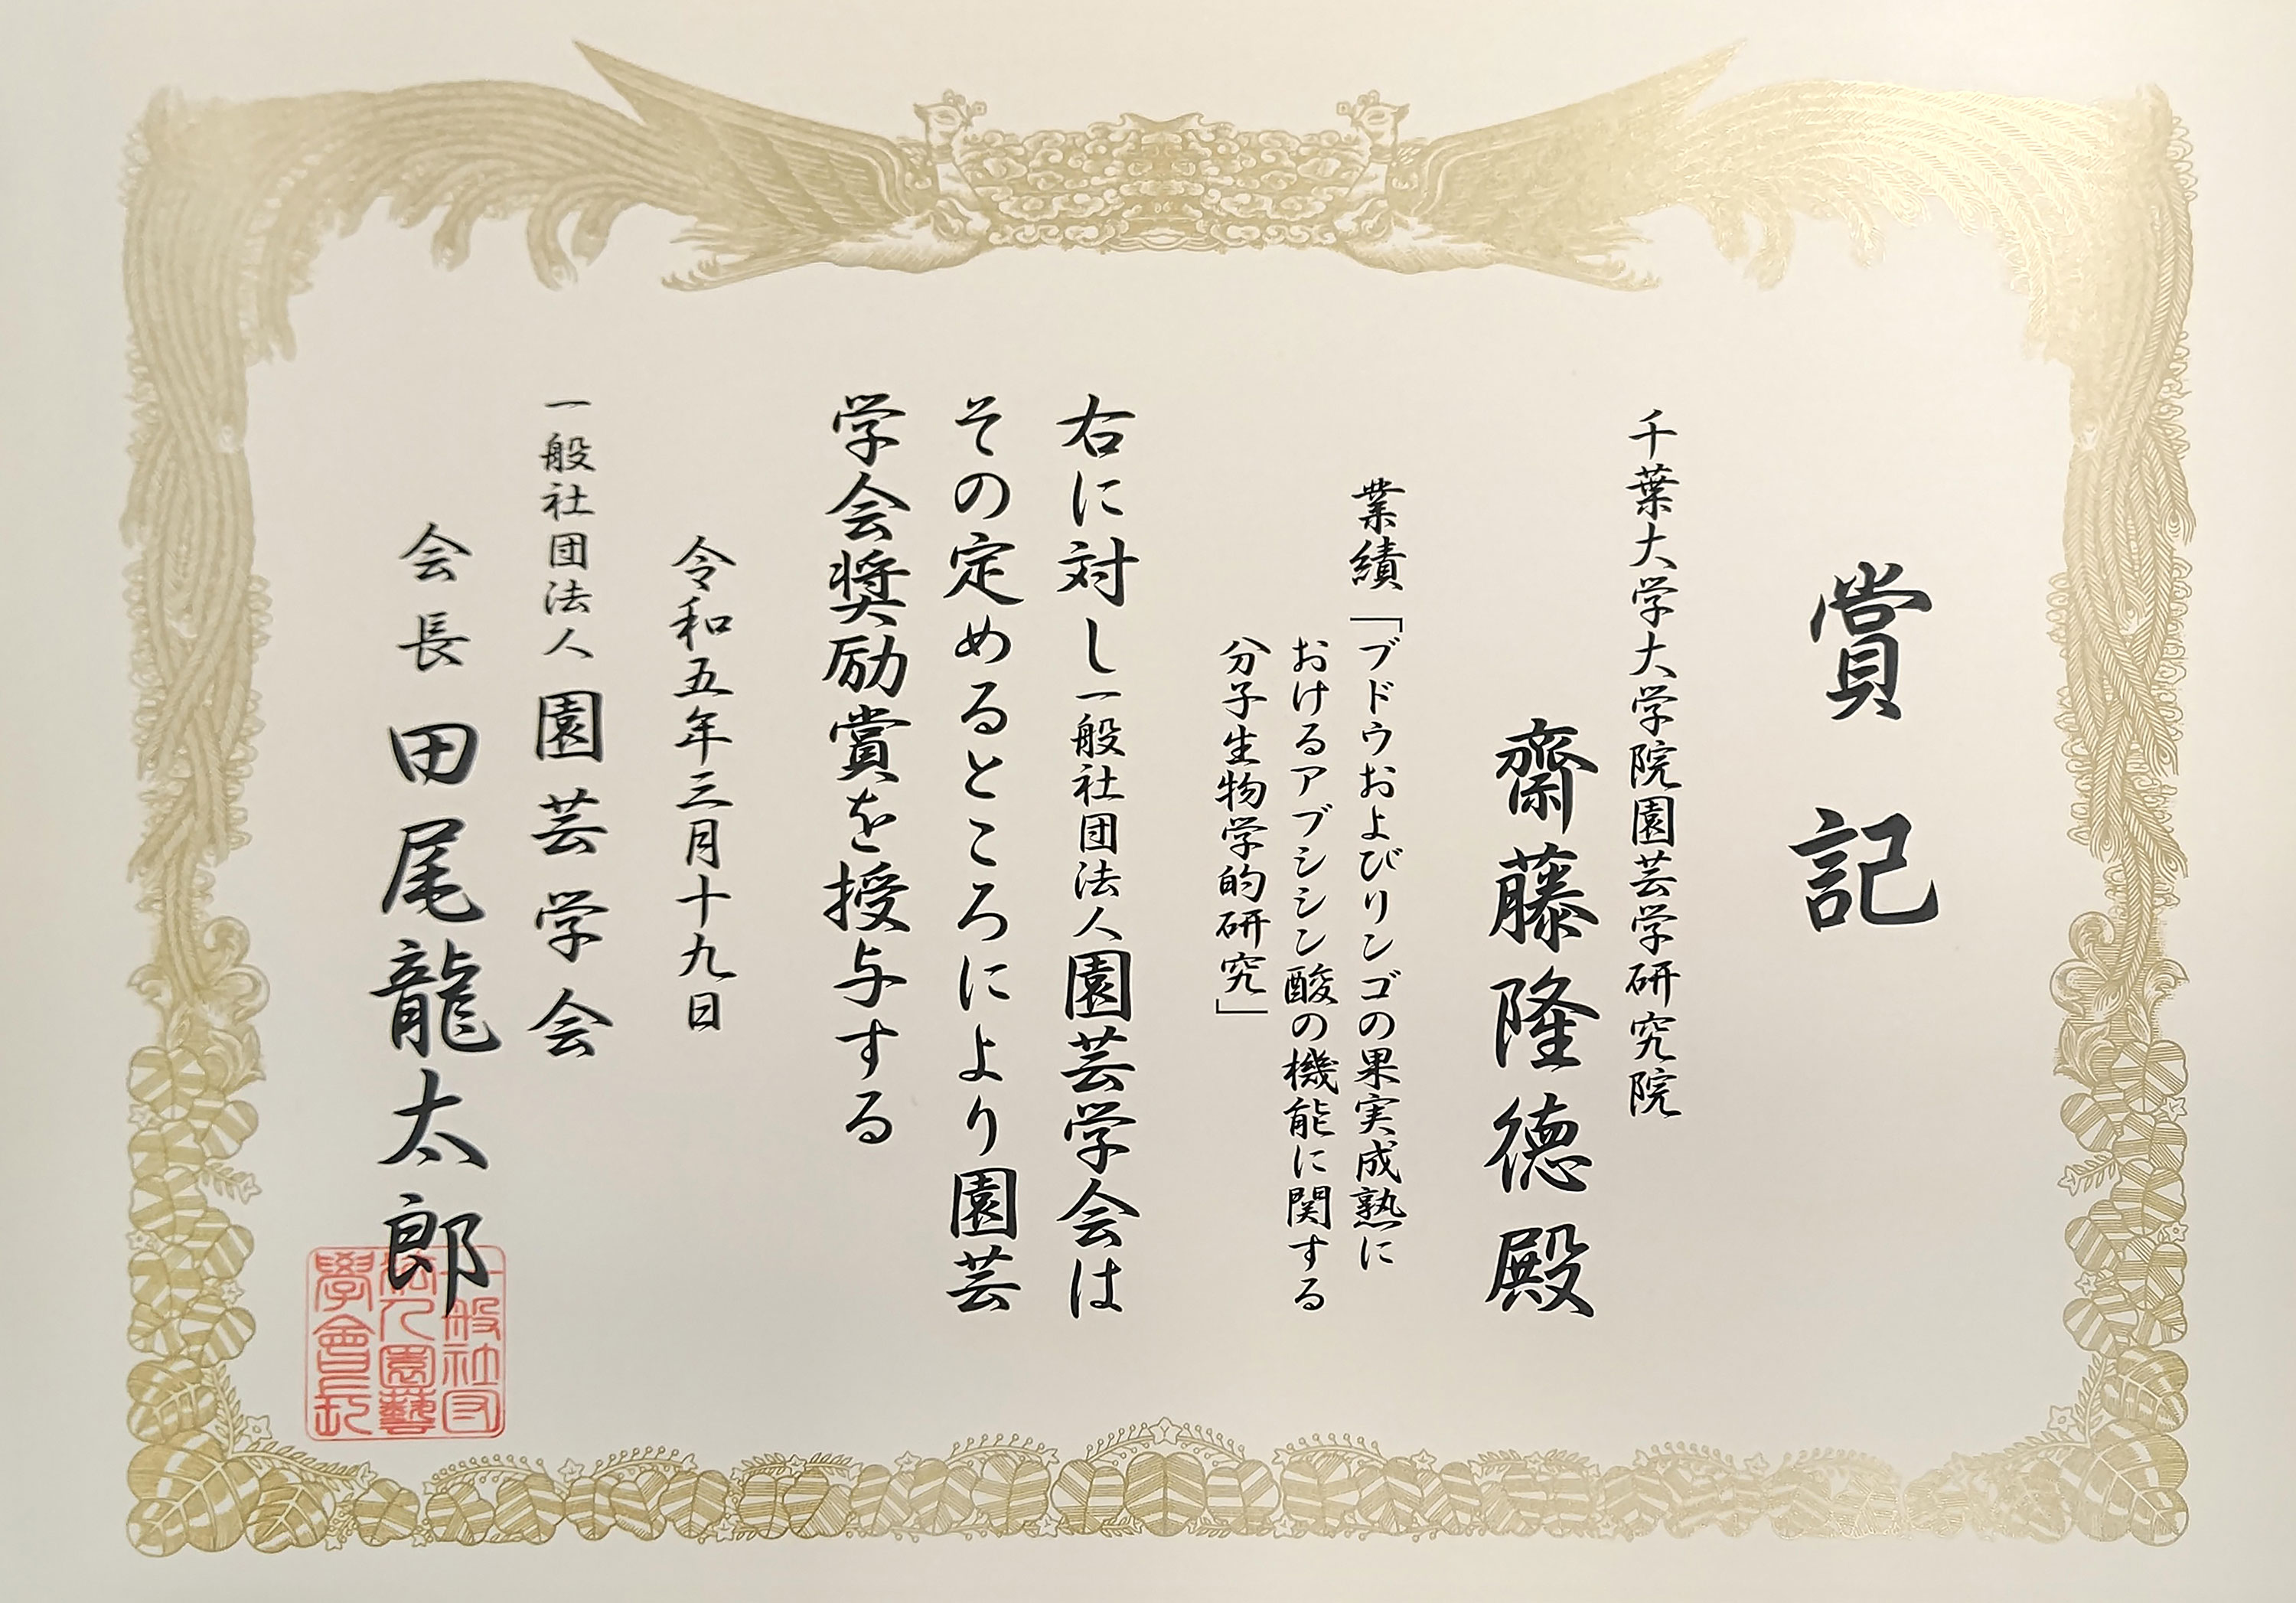 賞記
千葉大学大学院園芸学研究院
齋藤隆德殿
業績「ブドウおよびリンゴの果実成熟に
おけるアブシシン酸の機能に関する
分子生物学的研究」
右に対し一般社団法人園芸学会は
その定めるところにより園芸
学会奨励賞を授与する
令和五年三月十九日
一般社団法人園芸学会
会長田尾龍太郎
一般社団
法人園藝
學會長